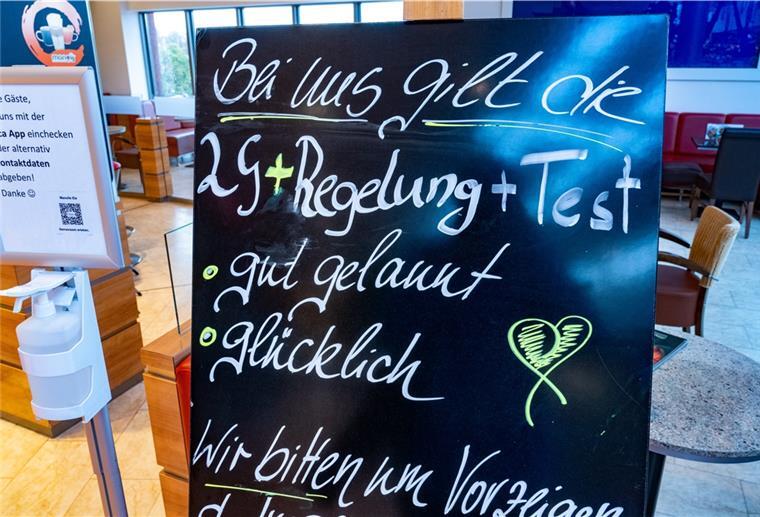 Bei uns gilt die
2G+Regelung + Test
• gut gelaunt
• glücklich
Wir bitten um Vorzeigen
e Gäste,
uns mit der
ca App einchecken
der alternativ
ontaktdaten
abgeben!
Danke ☺